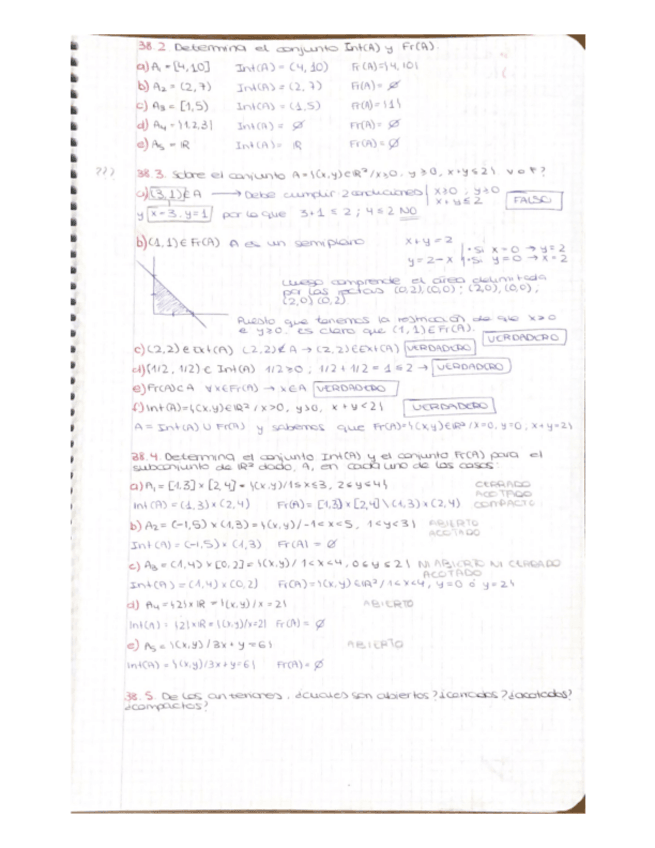 38.2. Determina el conjunto Int(A) y Fr(A).
a) A₁ = [4,10] Int(A) = (4, 10) Fr(A)={4,10}
b) A₂ = (2,7) Int(A) = (2,7) Fr(A) = ∅
c) A₃ = [1,5) Int(A) = (1,5) Fr(A) = {1}
d) A₄ = {1,2,3} Int(A) = ∅ Fr(A) = ∅
e) A₅ = ℝ Int(A) = ℝ Fr(A) = ∅
??? 38.3. Sobre el conjunto A = {(x,y)∈ℝ²/x≥0, y≥0, x+y≤2}. V o F?
a) (3,1)∈A → Debe cumplir 2 condiciones { x≥0, y≥0
x+y≤2 FALSO
y x=3, y=1 por lo que 3+1≤2; 4≤2 NO
b) (1,1)∈Fr(A) A es un semiplano x+y=2
y=2-x • Si x=0 → y=2
• Si y=0 → x=2
Luego comprende el área delimitada
por las rectas (0,2),(0,0); (2,0),(0,0);
(2,0)(0,2).
Puesto que tenemos la restricción de que x≥0
e y≥0, es claro que (1,1)∈Fr(A). VERDADERO
c) (2,2)∈Ext(A) (2,2)∉A → (2,2)∈Ext(A) VERDADERO
d) (1/2, 1/2) ∈ Int(A) 1/2≥0; 1/2+1/2=1≤2 → VERDADERO
e) Fr(A)⊂A ∀x∈Fr(A) → x∈A VERDADERO
f) Int(A)={(x,y)∈ℝ²/x>0, y>0, x+y<2} VERDADERO
A = Int(A) ∪ Fr(A) y sabemos que Fr(A)={(x,y)∈ℝ²/x=0, y=0, x+y=2}
38.4. Determina el conjunto Int(A) y el conjunto Fr(A) para el
subconjunto de ℝ² dado, A, en cada uno de los casos:
a) A₁=[1,3]×[2,4] = {(x,y)/1≤x≤3, 2≤y≤4} CERRADO
ACOTADO
Int(A) = (1,3)×(2,4) Fr(A) = [1,3]×[2,4] \ (1,3)×(2,4) COMPACTO
b) A₂=(-1,5)×(1,3)={(x,y)/-1<x<5, 1<y<3} ABIERTO
ACOTADO
Int(A) = (-1,5)×(1,3) Fr(A) = ∅
c) A₃=(1,4)×[0,2]={(x,y)/1<x<4, 0≤y≤2} NI ABIERTO NI CERRADO
ACOTADO
Int(A)=(1,4)×(0,2) Fr(A)={(x,y)∈ℝ²/1<x<4, y=0 ó y=2}
d) A₄={2}×ℝ={(x,y)/x=2} ABIERTO
Int(A)={2}×ℝ={(x,y)/x=2} Fr(A)=∅
e) A₅={(x,y)/3x+y=6} ABIERTO
Int(A)={(x,y)/3x+y=6} Fr(A)=∅
38.5. De los anteriores, ¿cuáles son abiertos? ¿cerrados? ¿acotados?
¿compactos?